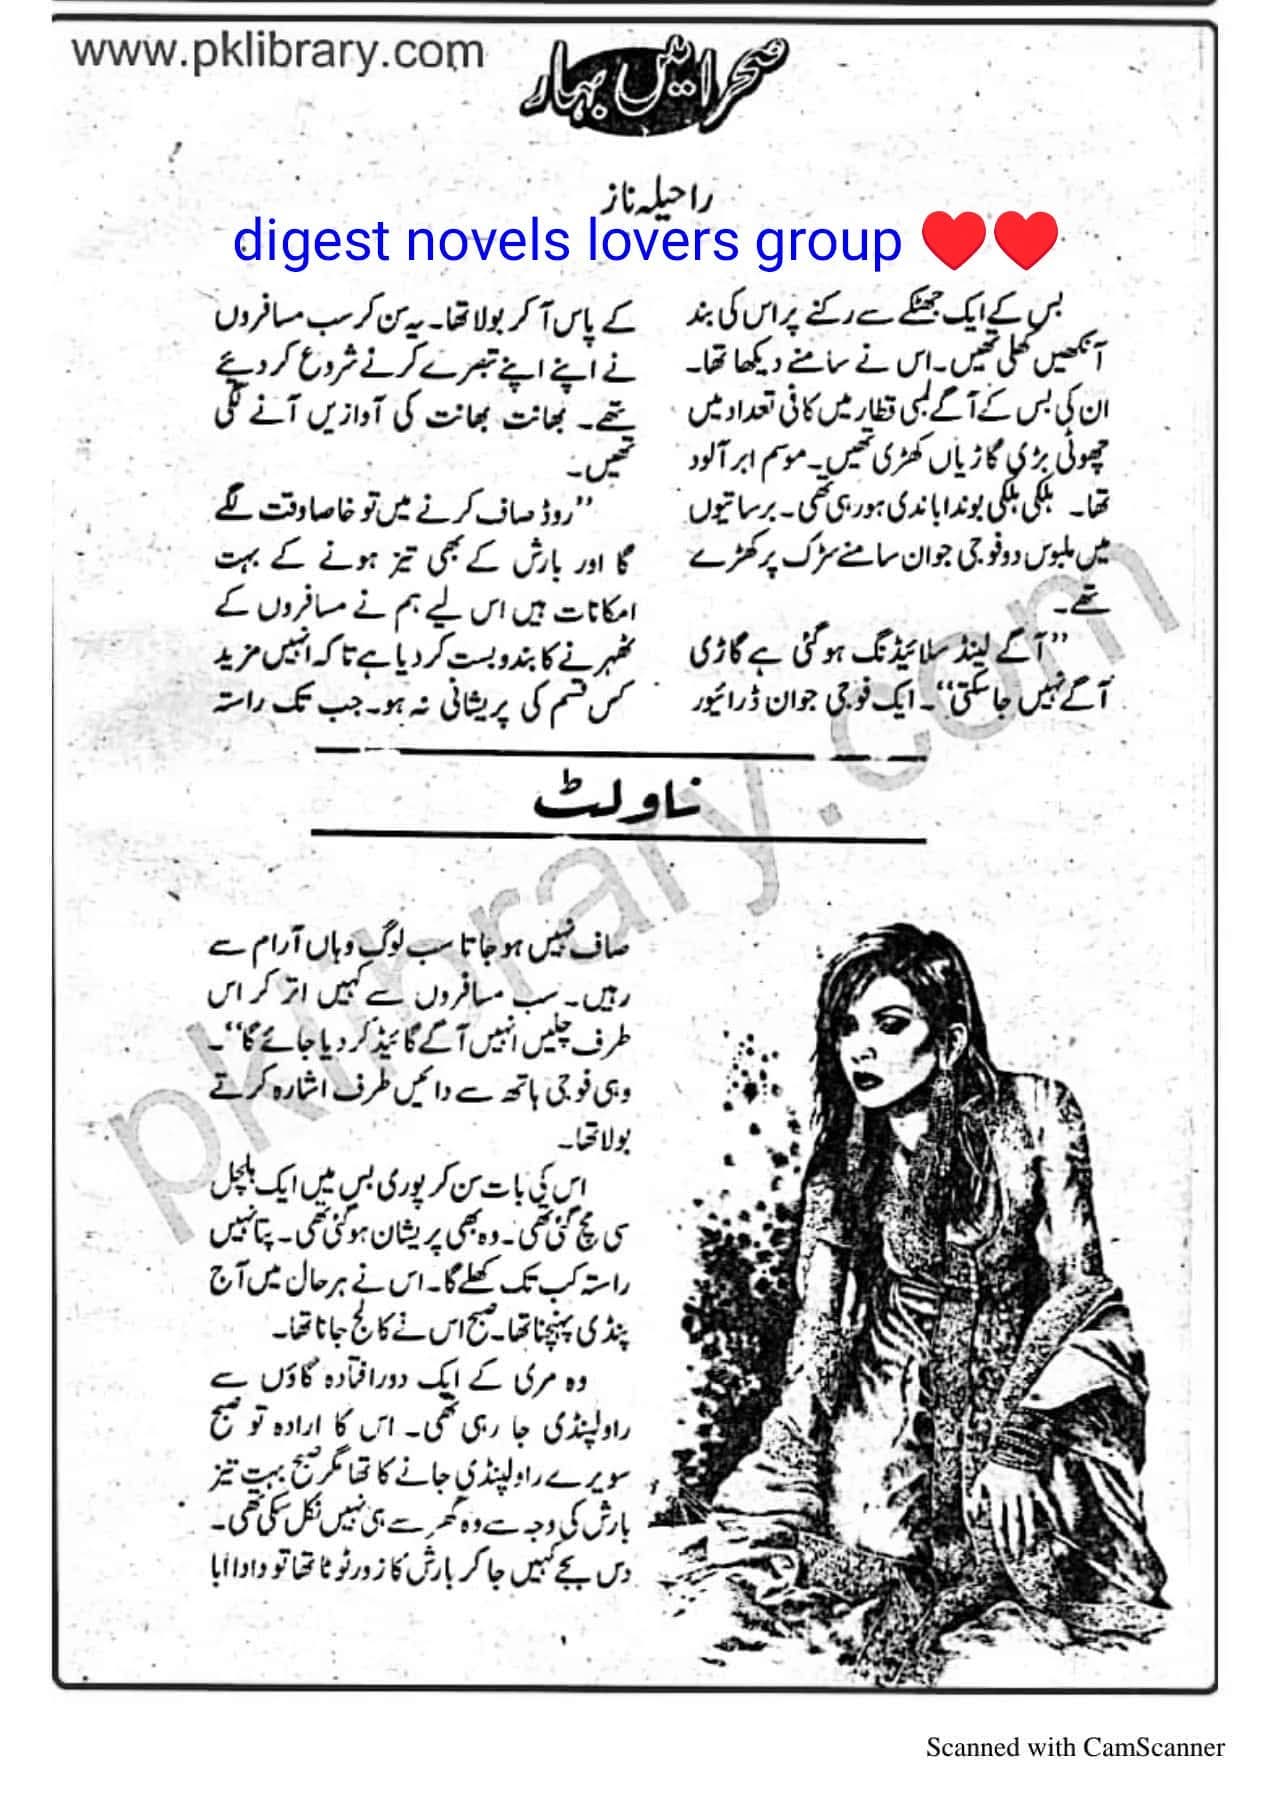 www.pklibrary.com
صحرا میں بہار
راحیلہ ناز
digest novels lovers group ❤️❤️
بس کے ایک جھٹکے سے رکنے پر اس کی بند
آنکھیں کھلی تھیں۔ اس نے سامنے دیکھا تھا۔
ان کی بس کے آگے لمبی قطار میں کافی تعداد میں
چھوٹی بڑی گاڑیاں کھڑی تھیں۔ موسم ابر آلود
تھا۔ ہلکی ہلکی بوندا باندی ہو رہی تھی۔ برساتیوں
میں ملبوس دو فوجی جوان سامنے سڑک پر کھڑے
تھے۔
”آگے لینڈ سلائیڈنگ ہو گئی ہے گاڑی
آگے نہیں جا سکتی“۔ ایک فوجی جوان ڈرائیور
کے پاس آ کر بولا تھا۔ یہ سن کر سب مسافروں
نے اپنے اپنے تبصرے کرنے شروع کر دیئے
تھے۔ بھانت بھانت کی آوازیں آنے لگی
تھیں۔
”روڈ صاف کرنے میں تو خاصا وقت لگے
گا اور بارش کے بھی تیز ہونے کے بہت
امکانات ہیں اس لیے ہم نے مسافروں کے
ٹھہرنے کا بندوبست کر دیا ہے تاکہ انہیں مزید
کس قسم کی پریشانی نہ ہو۔ جب تک راستہ
ناولٹ
صاف نہیں ہو جاتا سب لوگ وہاں آرام سے
رہیں۔ سب مسافروں سے کہیں اتر کر اس
طرف چلیں انہیں آگے گائیڈ کر دیا جائے گا“۔
وہی فوجی ہاتھ سے دائیں طرف اشارہ کرتے
بولا تھا۔
اس کی بات سن کر پوری بس میں ایک ہلچل
سی مچ گئی تھی۔ وہ بھی پریشان ہو گئی تھی۔ پتا نہیں
راستہ کب تک کھلے گا۔ اس نے ہر حال میں آج
پنڈی پہنچنا تھا۔ صبح اس نے کالج جانا تھا۔
وہ مری کے ایک دور افتادہ گاؤں سے
راولپنڈی جا رہی تھی۔ اس کا ارادہ تو صبح
سویرے راولپنڈی جانے کا تھا مگر صبح بہت تیز
بارش کی وجہ سے وہ گھر سے ہی نہیں نکل سکی تھی۔
دس بجے کہیں جا کر بارش کا زور ٹوٹا تھا تو دادا ابا
pklibrary.com
Scanned with CamScanner